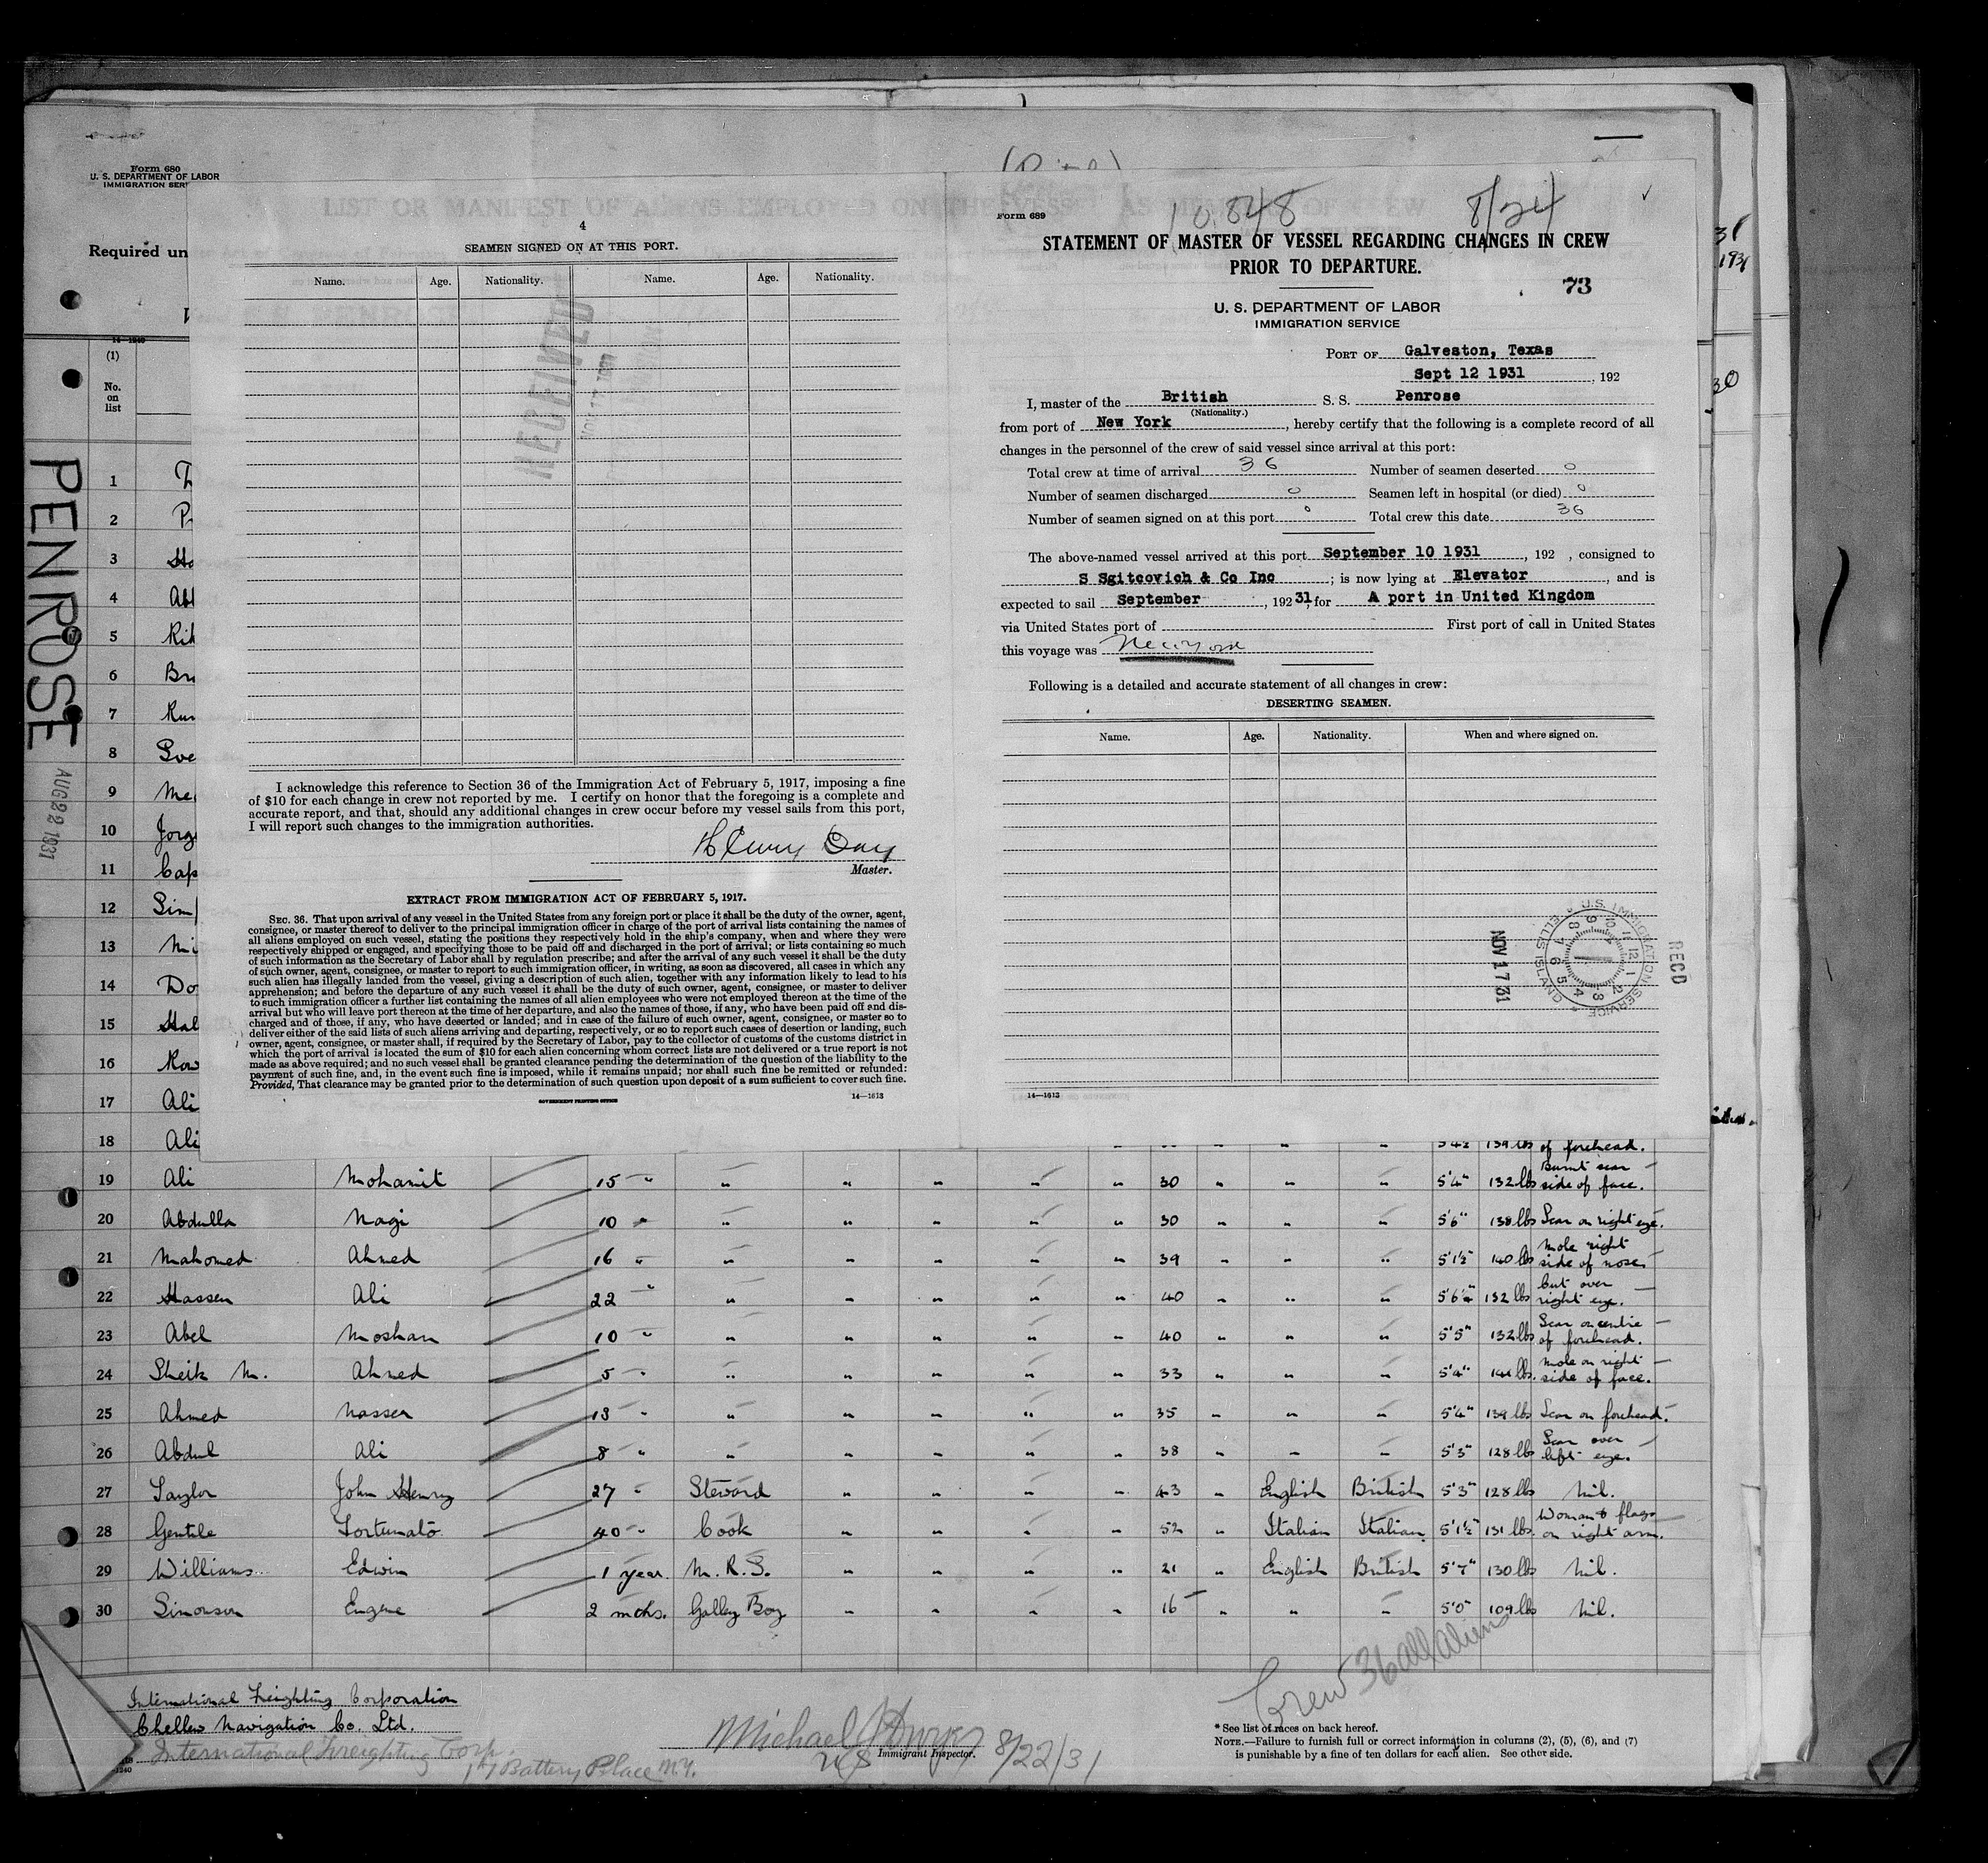 Form 680
U. S. DEPARTMENT OF LABOR
IMMIGRATION SER
Required un
14—1240
(1)
No.
on
list
PENROSE
AUG 22 1931
1
2
3
4 Abl
5
6
7
8
9
10
11 Cap
12
13
14 Do
15 Hal
16
17 Ali
18 Ali
LIST OR MANIFEST OF ALIENS EMPLOYED ON THE VESSEL AS MEMBERS OF CREW
4
SEAMEN SIGNED ON AT THIS PORT.
Name. Age. Nationality. Name. Age. Nationality.
RECEIVED
I acknowledge this reference to Section 36 of the Immigration Act of February 5, 1917, imposing a fine
of $10 for each change in crew not reported by me. I certify on honor that the foregoing is a complete and
accurate report, and that, should any additional changes in crew occur before my vessel sails from this port,
I will report such changes to the immigration authorities.
Henry Day
Master.
EXTRACT FROM IMMIGRATION ACT OF FEBRUARY 5, 1917.
SEC. 36. That upon arrival of any vessel in the United States from any foreign port or place it shall be the duty of the owner, agent,
consignee, or master thereof to deliver to the principal immigration officer in charge of the port of arrival lists containing the names of
all aliens employed on such vessel, stating the positions they respectively hold in the ship's company, when and where they were
respectively shipped or engaged, and specifying those to be paid off and discharged in the port of arrival; or lists containing so much
of such information as the Secretary of Labor shall by regulation prescribe; and after the arrival of any such vessel it shall be the duty
of such owner, agent, consignee, or master to report to such immigration officer, in writing, as soon as discovered, all cases in which any
such alien has illegally landed from the vessel, giving a description of such alien, together with any information likely to lead to his
apprehension; and before the departure of any such vessel it shall be the duty of such owner, agent, consignee, or master to deliver
to such immigration officer a further list containing the names of all alien employees who were not employed thereon at the time of the
arrival but who will leave port thereon at the time of her departure, and also the names of those, if any, who have been paid off and dis-
charged and of those, if any, who have deserted or landed; and in case of the failure of such owner, agent, consignee, or master so to
deliver either of the said lists of such aliens arriving and departing, respectively, or so to report such cases of desertion or landing, such
owner, agent, consignee, or master shall, if required by the Secretary of Labor, pay to the collector of customs of the customs district in
which the port of arrival is located the sum of $10 for each alien concerning whom correct lists are not delivered or a true report is not
made as above required; and no such vessel shall be granted clearance pending the determination of the question of the liability to the
payment of such fine, and, in the event such fine is imposed, while it remains unpaid; nor shall such fine be remitted or refunded:
Provided, That clearance may be granted prior to the determination of such question upon deposit of a sum sufficient to cover such fine.
GOVERNMENT PRINTING OFFICE
14—1613
Form 689
10.848 8/24
STATEMENT OF MASTER OF VESSEL REGARDING CHANGES IN CREW
PRIOR TO DEPARTURE.
73
U. S. DEPARTMENT OF LABOR
IMMIGRATION SERVICE
PORT OF Galveston, Texas
Sept 12 1931, 192
I, master of the British S. S. Penrose
(Nationality.)
from port of New York, hereby certify that the following is a complete record of all
changes in the personnel of the crew of said vessel since arrival at this port:
Total crew at time of arrival 36 Number of seamen deserted 0
Number of seamen discharged 0 Seamen left in hospital (or died) 0
Number of seamen signed on at this port 0 Total crew this date 36
The above-named vessel arrived at this port September 10 1931, 192 , consigned to
S Sgitcovich & Co Inc; is now lying at Elevator, and is
expected to sail September, 192 31, for A port in United Kingdom
via United States port of First port of call in United States
this voyage was New York
Following is a detailed and accurate statement of all changes in crew:
DESERTING SEAMEN.
Name. Age. Nationality. When and where signed on.
NOV 17 31
U.S. IMMIGRATION SERVICE ELLIS ISLAND
RECD
14—1613
5'4½ 139 lbs of forehead.
19 Ali Mohamit 15 " " " " " " 30 " " " 5'4" 132 lbs Burnt scar side of face.
20 Abdulla Nagi 10 " " " " " " 30 " " " 5'6" 138 lbs Scar on right eye.
21 Mahomed Ahmed 16 " " " " " " 39 " " " 5'1½" 140 lbs Mole right side of nose
22 Hassen Ali 22 " " " " " " 40 " " " 132 lbs Cut over right eye.
23 Abel Moshan 10 " " " " " " 40 " " " 5'5" 132 lbs Scar on centre of forehead.
24 Sheik M. Ahmed 5 " " " " " " 33 " " " 5'4" Mole on right side of face.
25 Ahmed Nasser 13 " " " " " " 35 " " " 5'4" 139 lbs Scar on forehead.
26 Abdul Ali 8 " " " " " " 38 " " " 5'3" 128 lbs Scar over left eye.
27 Taylor John Henry 27 " Steward " " " " 43 " English British 5'3" 128 lbs Nil.
28 Gentile Fortunato 40 " Cook " " " " 52 " Italian Italian 5'1½" 131 lbs. Woman & flags on right arm.
29 Williams Edwin 1 year. M. R. S. " " " " 21 " English British 5'7" 130 lbs Nil.
30 Simonson Eugene 2 mths. Galley Boy " " " " 16 " " " 5'0" 109 lbs Nil.
Crew 36 all aliens
International Freighting Corporation
Chellew Navigation Co. Ltd.
International Freighting Corp.
17 Battery Place N.Y.
Michael 8/22/31
Immigrant Inspector.
* See list of races on back hereof.
NOTE.—Failure to furnish full or correct information in columns (2), (5), (6), and (7)
is punishable by a fine of ten dollars for each alien. See other side.